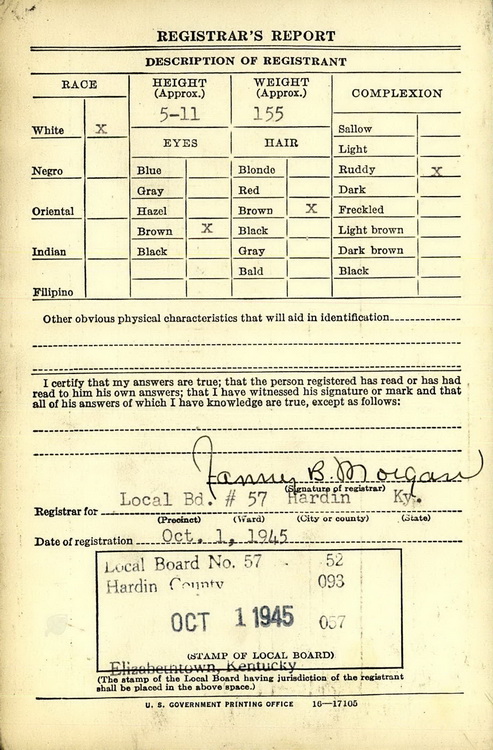 REGISTRAR'S REPORT
DESCRIPTION OF REGISTRANT
RACE
HEIGHT (Approx.)
WEIGHT (Approx.)
COMPLEXION
5-11
155
White X
EYES
HAIR
Sallow
Light
Negro
Blue
Blonde
Ruddy X
Gray
Red
Dark
Oriental
Hazel
Brown X
Freckled
Brown X
Black
Light brown
Indian
Black
Gray
Dark brown
Bald
Black
Filipino
Other obvious physical characteristics that will aid in identification
I certify that my answers are true; that the person registered has read or has had
read to him his own answers; that I have witnessed his signature or mark and that
all of his answers of which I have knowledge are true, except as follows:
Fanny B. Morgan
(Signature of registrar)
Registrar for Local Bd. # 57 Hardin Ky.
(Precinct) (Ward) (City or county) (State)
Date of registration Oct. 1, 1945
Local Board No. 57 52
Hardin County 093
OCT 1 1945 057
(STAMP OF LOCAL BOARD)
Elizabethtown, Kentucky
(The stamp of the Local Board having jurisdiction of the registrant
shall be placed in the above space.)
U. S. GOVERNMENT PRINTING OFFICE 16—17105